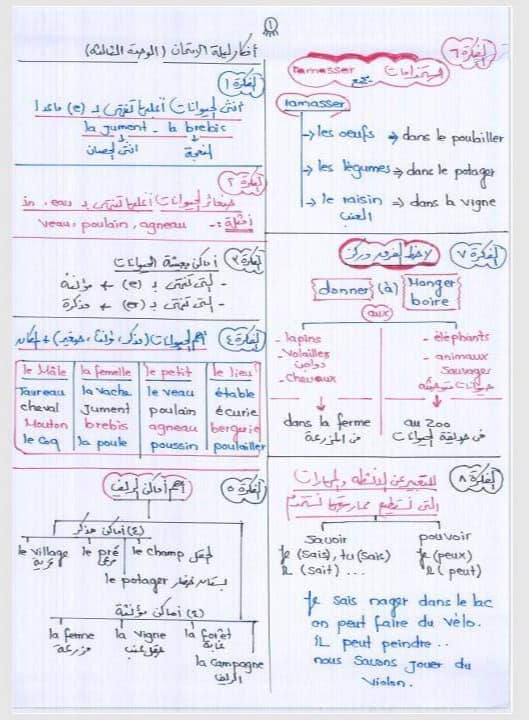 ١
أفكار ليلة الامتحان (الوحدة الثالثة)
الفكرة ١
أنثى الحيوانات أغلبها تنتهي بـ (e) ماعدا
la jument - la brebis
أنثى الحصان
النعجة
الفكرة ٢
صغائر الحيوانات أغلبها تنتهي بـ in, eau
أمثلة :- veau, poulain, agneau
الفكرة ٣
أماكن معيشة الحيوانات
- التي تنتهي بـ (e) ← مؤنثة
- التي تنتهي بـ (er) ← مذكرة
الفكرة ٤
أهم الحيوانات (مذكر، مؤنث، صغير) + المكان
le Mâle la femelle le petit le lieu
Taureau la vache le veau étable
cheval Jument poulain écurie
Mouton brebis agneau bergerie
le coq la poule poussin poulailler
الفكرة ٥
أهم أماكن الريف
(ع) أماكن مذكر
le village le pré le champ الحقل
قرية مرعى
le potager بستان خضار
(ع) أماكن مؤنثة
la ferme la vigne la forêt
مزرعة حقل عنب غابة
la campagne
الريف
الفكرة ٦
استخدامات ramasser
يجمع
ramasser
→ les oeufs ⇒ dans le poulailler
→ les légumes ⇒ dans le potager
→ le raisin ⇒ dans la vigne
العنب
الفكرة ٧
لاحظ الفرق وركز
donner (à) Manger
boire
aux
- lapins
- Volailles
دواجن
- chevaux
dans la ferme
في المزرعة
- éléphants
- animaux
sauvager
حيوانات متوحشة
au zoo
في حديقة الحيوانات
الفكرة ٨
للتعبير عن الأنشطة والمهارات
التي نستطيع ممارستها نستخدم
savoir pouvoir
je (sais), tu (sais) je (peux)
il (sait) ... il (peut)
je sais nager dans le lac
on peut faire du vélo.
il peut peindre ..
nous savons jouer du
violon.